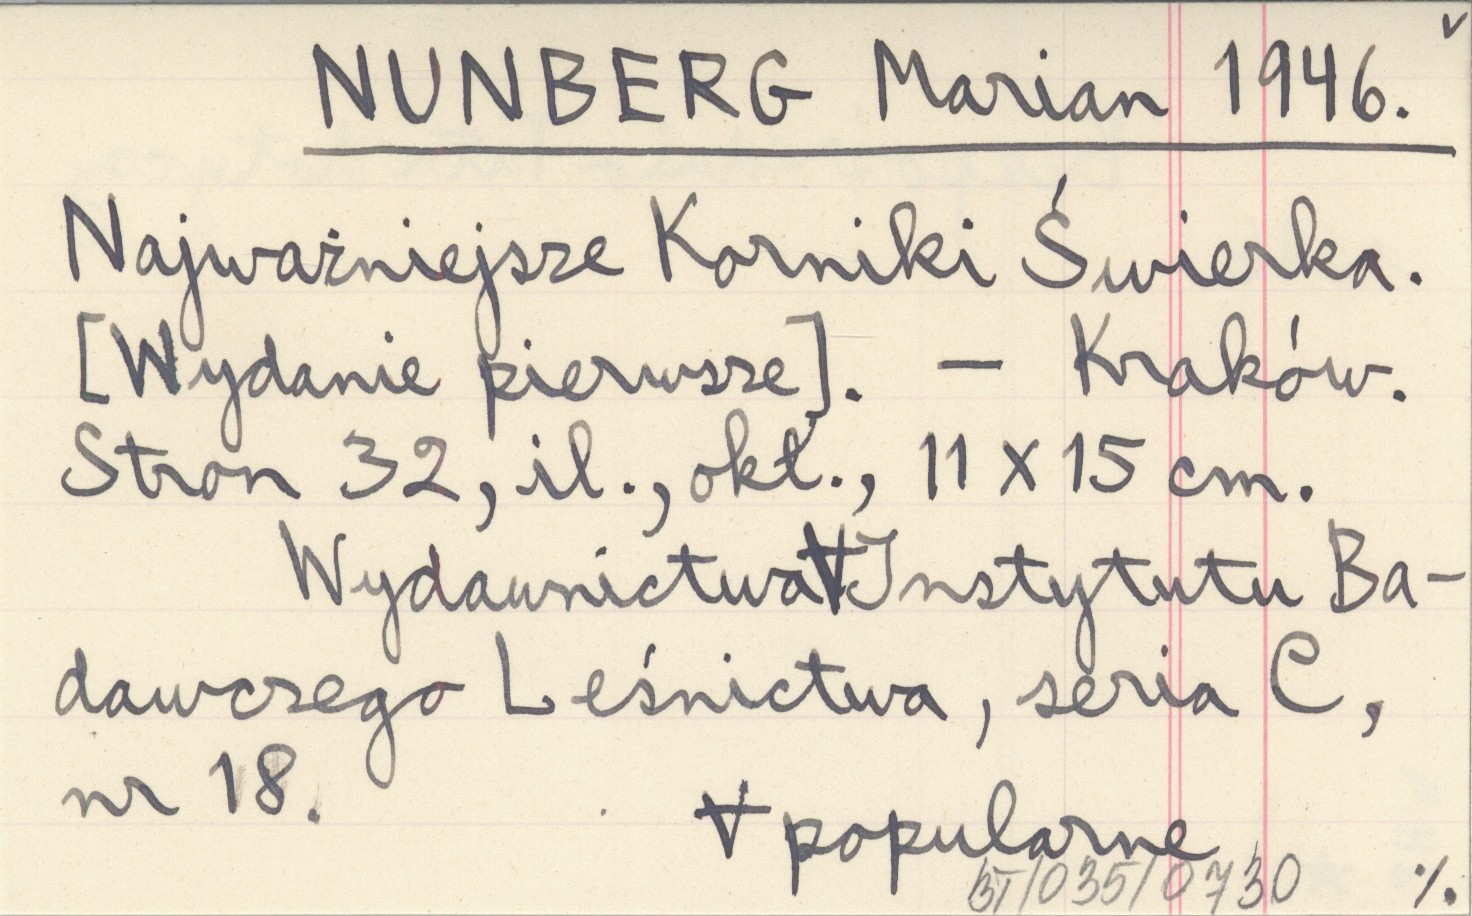 v
NUNBERG Marian 1946.
Najważniejsze Korniki Świerka.
[Wydanie pierwsze]. — Kraków.
Stron 32, il., okł., 11 x 15 cm.
Wydawnictwa ∀ Instytutu Ba-
dawczego Leśnictwa, seria C,
nr 18.
∀ popularne
BT/035/0730
%.